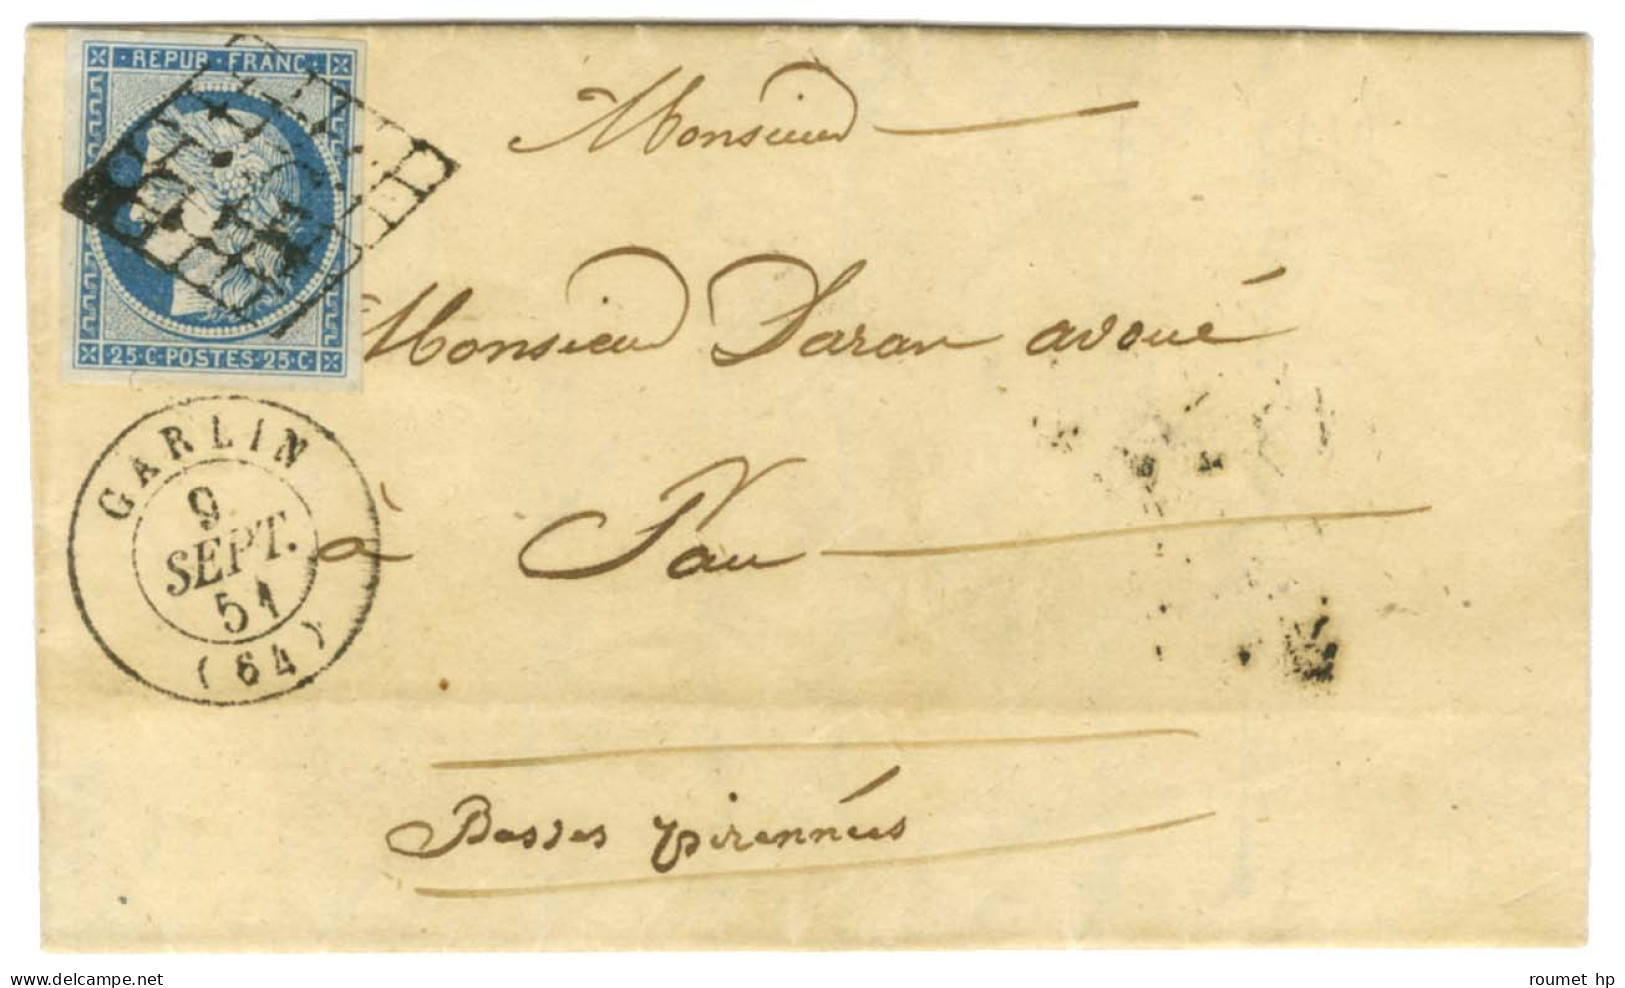 REPUB. FRANC.
25.C.POSTES.25.C
Monsieur
Monsieur Daran avoué
à Pau
Basses pirennées
GARLIN
9
SEPT.
51
(64)
www.delcampe.net
roumet hp